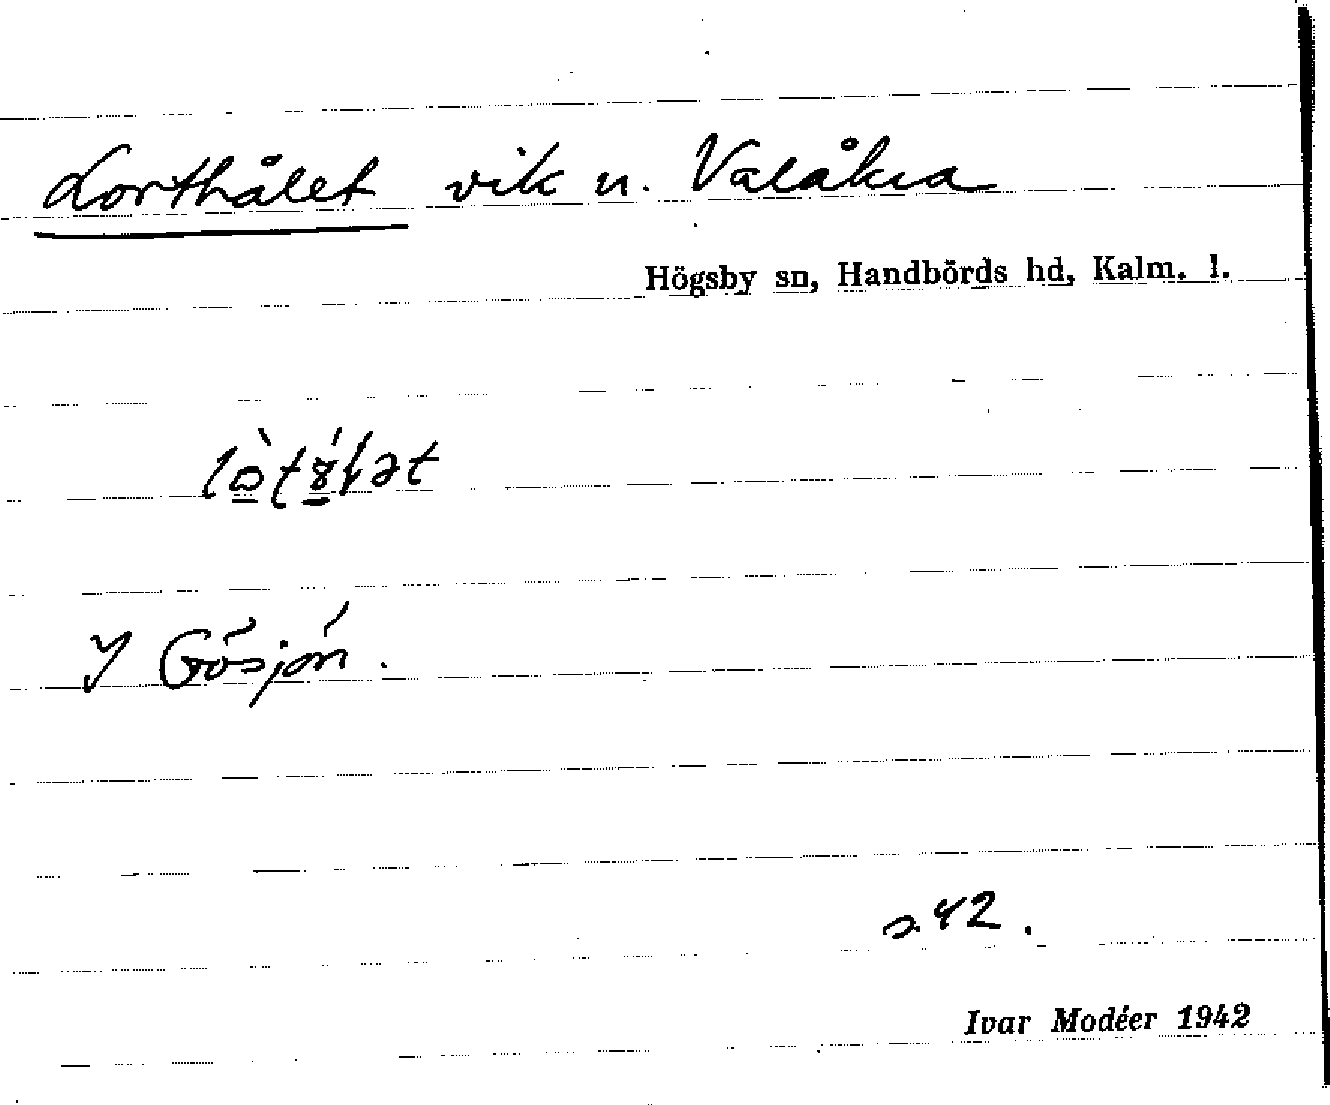 Lorthålet vik u. Valåkra
Högsby sn, Handbörds hd, Kalm. l.
I Gósjön.
s. 42.
Ivar Modéer 1942